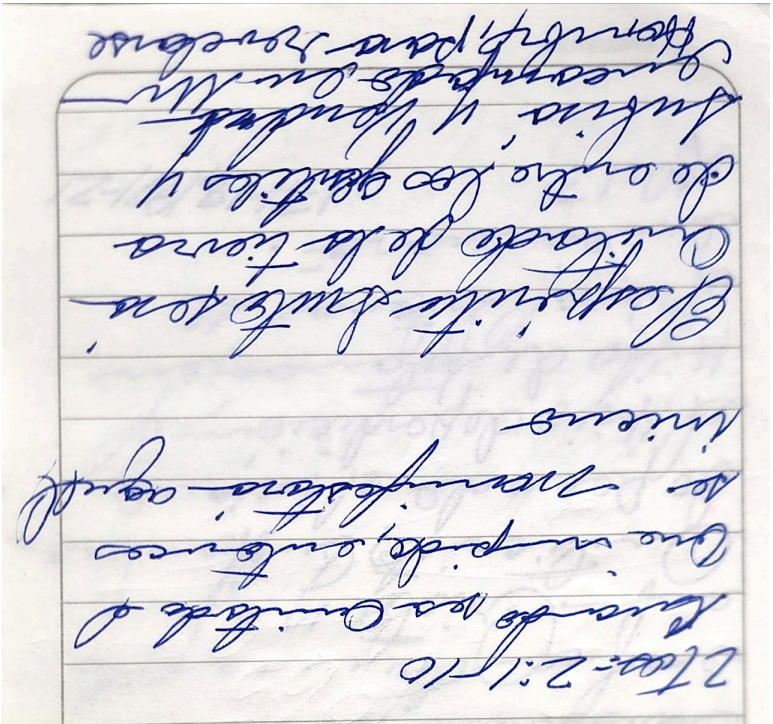 2 Tes = 2:1-10
Cuando sea Quitado el
Que impide, entonces
se manifestará aquel
inicuo
El espiritu santo será
Quitado de la tierra
de entre los gentiles y
subirá y vendrá
en un
Hombre, para revelarse